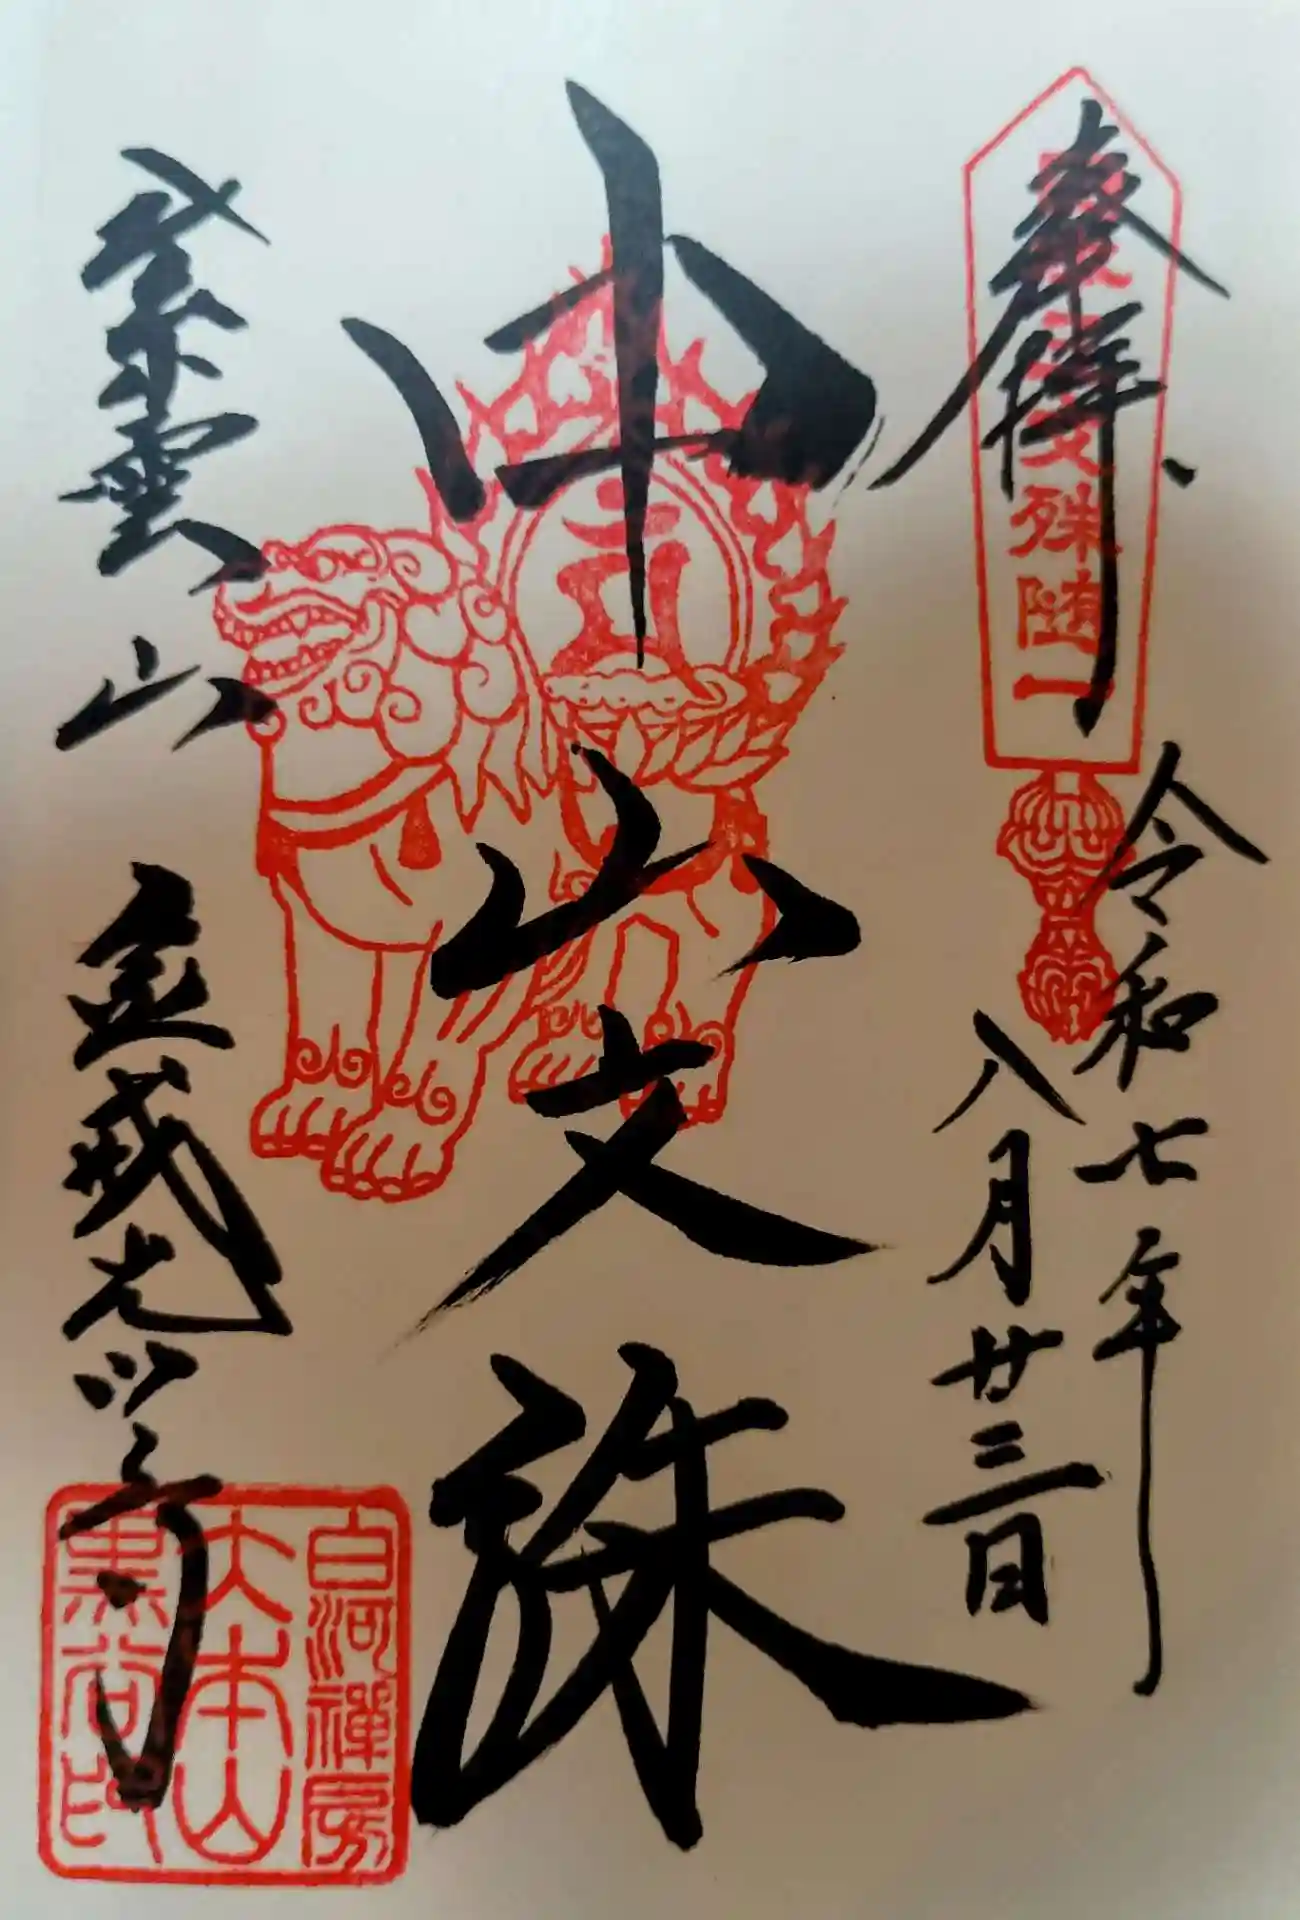 奉拝
日本三文殊随一
令和七年
八月廿三日
中山文殊
紫雲山 金戒光明寺
白河禅房
大本山
黒谷印